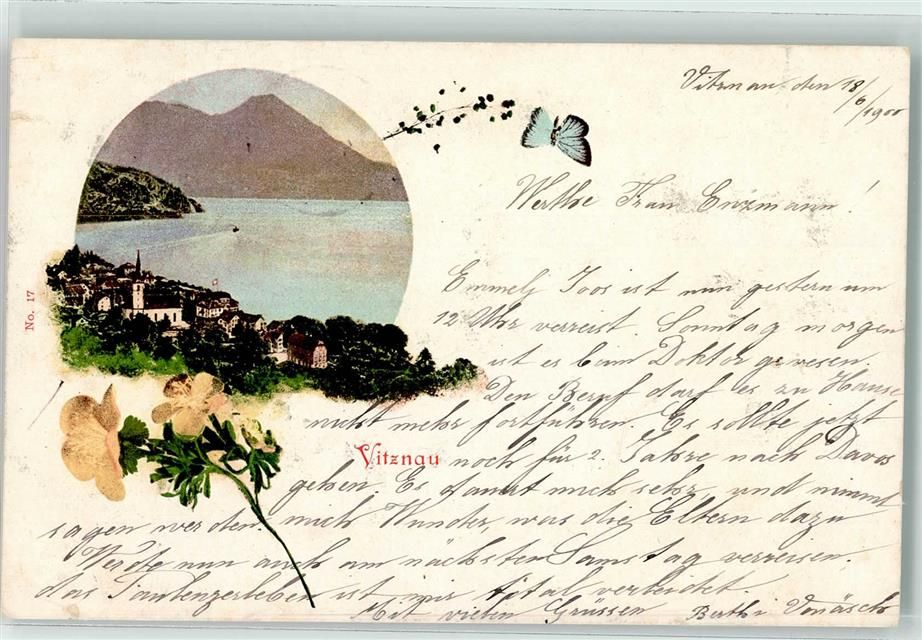 Vitznau den 18/6/1900
Werthe Frau Enzmann!
Emmely Joos ist nun gestern um
12 Uhr verreist. Sonntag morgen
ist es beim Doktor gewesen.
Den Beruf darf es zu Hause
nicht mehr fortführen. Es sollte jetzt
Vitznau
noch für 2 Jahre nach Davos
gehen. Es dauert mich sehr, und nimmt
mich Wunder, was die Eltern dazu
sagen werden.
Werde nun auch am nächsten Samstag verreisen.
das ist mir total verleidet.
Mit vielen Grüssen Berthi
No. 17